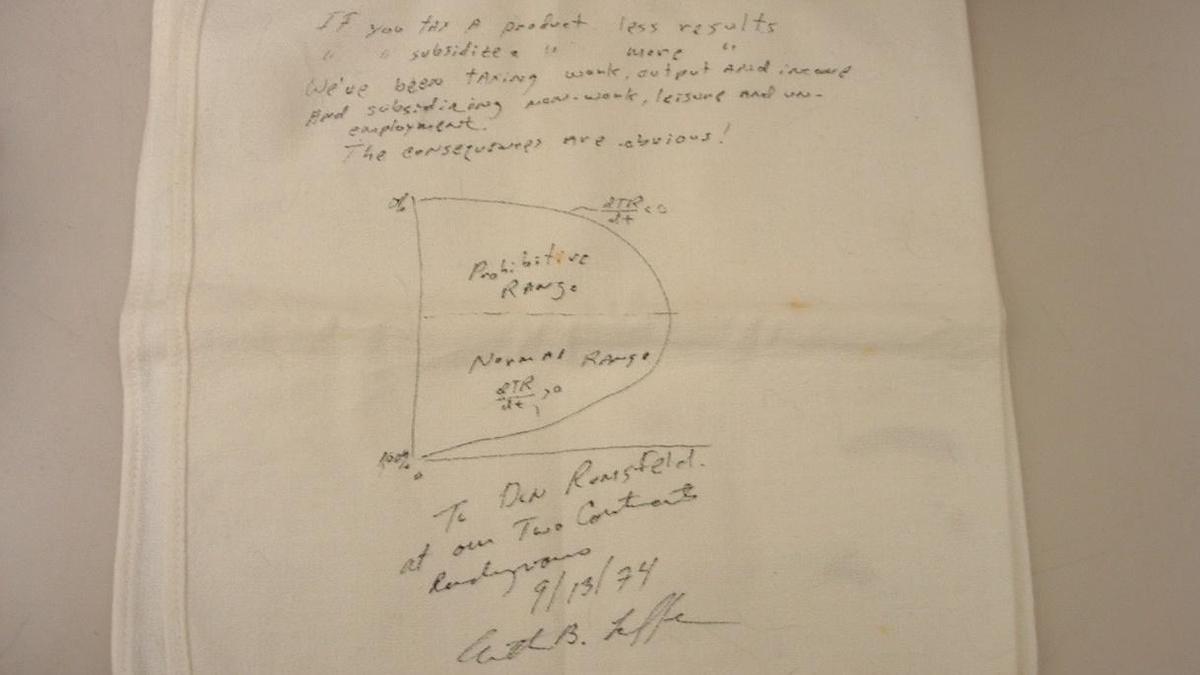 If you tax a product less results
" " subsidize a " more "
We've been taxing work, output and income
And subsidizing non-work, leisure and un-
employment.
The consequences are obvious!
0%
dTR/dt < 0
Prohibitive
Range
Normal Range
dTR/dt > 0
100%
0
To Don Rumsfeld.
at our Two Continents
Rendezvous
9/13/74
Arthur B. Laffer